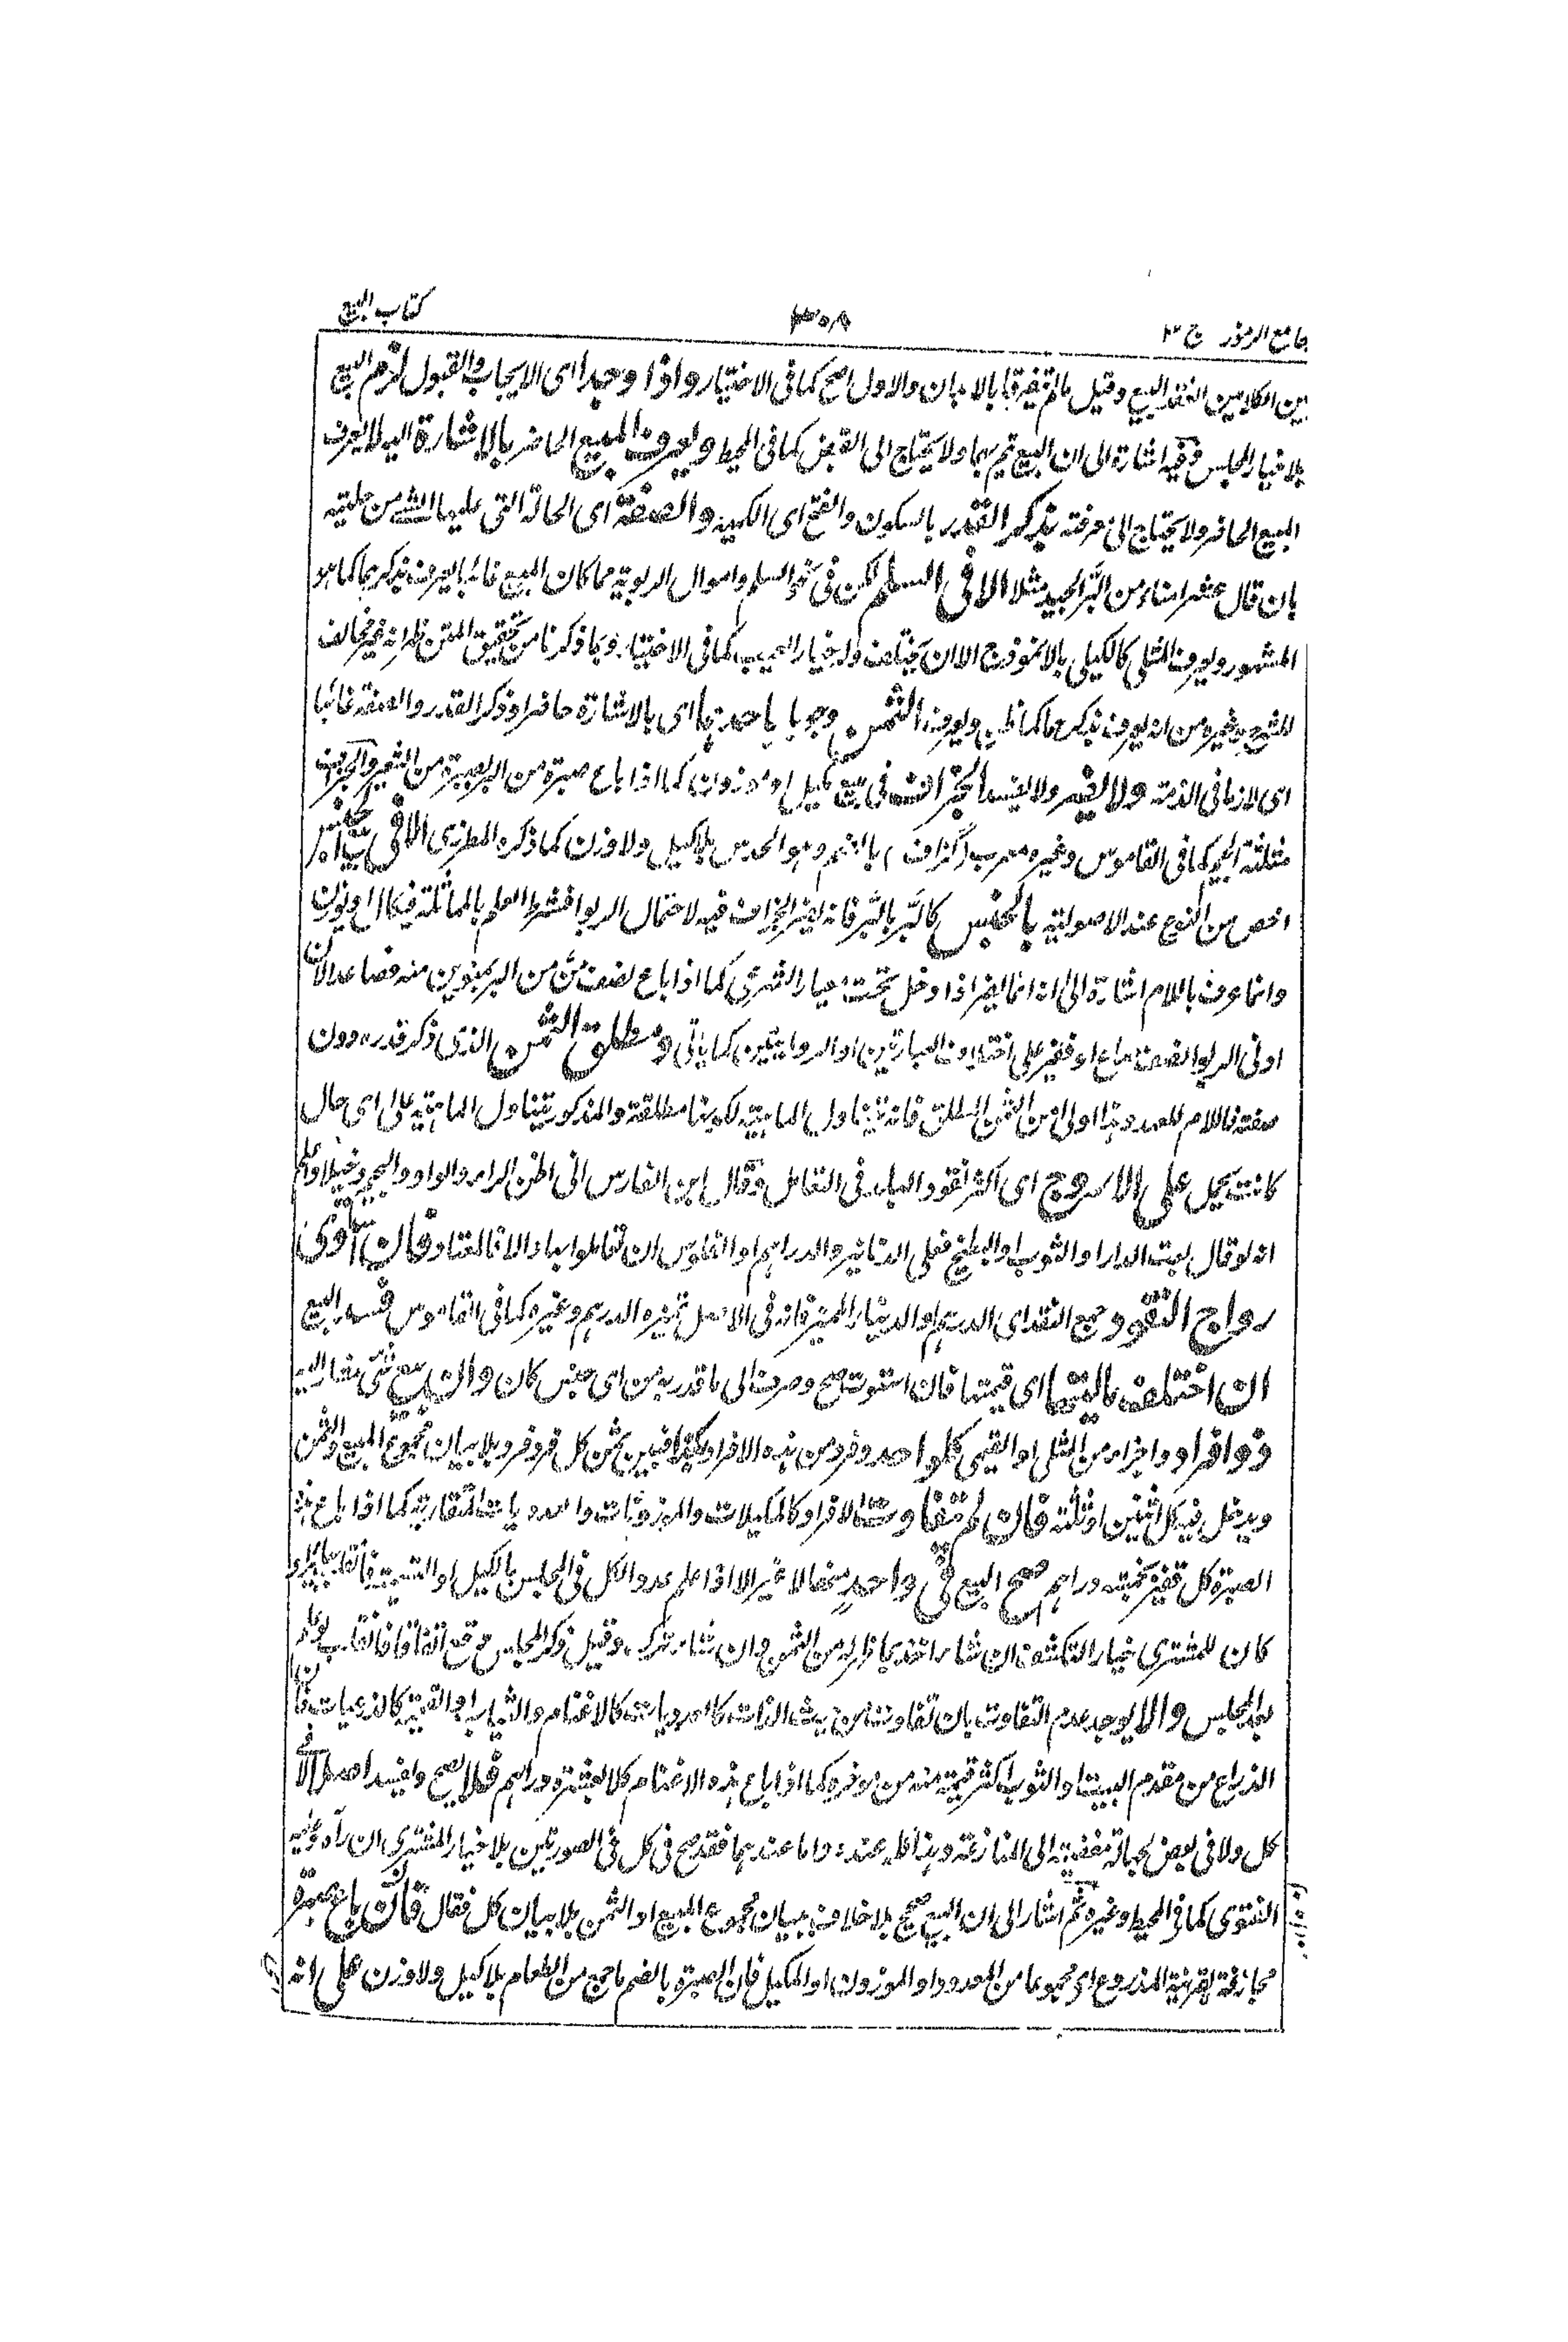 جامع الرموز ج ٣
٣٥٨
كتاب البيع
بين الكلامين انعقد البيع وقيل ما لم يتفرقا بالابدان والاول اصح كما في الاختيار واذا وجدا اى الايجاب والقبول لزم البيع
بلا خيار المجلس وفيه اشارة الى ان البيع يتم بهما ولا يحتاج الى القبض كما في المحيط ويعرف المبيع الحاضر بالاشارة اليه لا يعرف
المبيع الحاضر ولا يحتاج الى معرفته بذكر القدر بالسكون والفتح اى الكمية والصفة اى الحالة التى عليها الشئ من حليته
بان قال عشر امناء من البر الجيد مثلا الا فى السلم لكن فى نحو السلم واموال الربوية مما كان المبيع غائبا يعرف بذكرهما كما هو
المشهور ويعرف المثلى كالكيلى بالانموذج الا ان يختلف وله خيار العيب كما فى الاختيار وبما ذكرنا من تحقيق المتن ظهر انه غير مخالف
للشروح وغيره من انه يعرف بذكرهما كما ظن ويعرف الثمن وجوبا باحدهما اى بالاشارة حاضرا وذكر القدر والصفة غائبا
اى لازما فى الذمة ولا يضر ولا يفسد الجزاف فى بيع مكيل او موزون كما اذا باع صبرة من البر بصبرة من الشعير والجزاف
مثلثة الجيم كما فى القاموس وغيره معرب (گزاف) بالضم وهو الحدس بلا كيل ولا وزن كما ذكره المطرزى الا فى بيع الجنس
اخص من النوع عند الاصولية بالجنس كالبر بالبر فانه يضر الجزاف فيه لاحتمال الربوا فشرط العلم بالمماثلة فيكال او يوزن
وانما عرف باللام اشارة الى انه انما يضر اذا دخل تحت معيار الشرعى كما اذا باع نصف من من البر بمنوين منه فصاعدا لان
ادنى الربوا نصف صاع او قفيز على اختلاف العبارتين او الروايتين كما ياتى ومطلق الثمن الذى ذكر قدره دون
صفته فاللام للعهد وهذا اولى من الثمن المطلق فانه يتناول الماهية لكونها مطلقة والمذكور يتناول الماهية على اى حال
كانت يحمل على الاروج اى اكثر نقود البلد فى التعامل وقال ابن الفارس انى اظن الراء والواو والجيم دخيلا واعلم
انه لو قال بعت الدار او الثوب او البطيخ فعلى الدنانير والدراهم او الفلوس ان تعاملوا بها والا فالمعتاد فان استوى
رواج النقود جمع النقد اى الدرهم او الدينار المميز فانه فى الاصل تمييزه الدرهم وغيره كما فى القاموس فسد البيع
ان اختلف ماليتها اى قيمتها فان استوت صح وصرف الى ما قدر به من اى جنس كان وان بيع شئ مشار اليه
ذو افراد واجزاء من المثلى او القيمى كل واحد وفرد من هذه الافراد بكذا فبين ثمن كل فرد فرد بلا بيان مجموع المبيع والثمن
ويدخل فيه كل اثنين او ثلثة فان لم تتفاوت الافراد كالمكيلات والموزونات والعدديات المتقاربة كما اذا باع هذه
الصبرة كل قفيز بخمسة دراهم صح البيع فى واحد منها لا غير الا اذا علم عدد الكل فى المجلس بالكيل او التسمية
كان للمشترى خيار التكشف ان شاء اخذ بما ظهر له من الثمن وان شاء تركه وقيل ذكر المجلس وقع اتفاقا
بعد المجلس والا يوجد عدم التفاوت بان تفاوت من حيث الذات كالعدديات كالاغنام والثياب او القيمة كالذرعيات فان
الذراع من مقدم البيت او الثوب اكثر قيمة منه من مؤخره كما اذا باع هذه الاغنام كلا بعشرة دراهم فلا يصح ويفسد اصلا لا فى
كل ولا فى بعض لجهالة مفضية الى المنازعة وهذا كله عنده واما عندهما فقد صح فى كل فى الصورتين بلا خيار للمشترى ان رآه وعليه
الفتوى كما فى المحيط وغيره ثم اشار الى ان البيع صحيح بلا خلاف ببيان مجموع المبيع او الثمن بلا بيان كل فقال فان باع صبرة
مجازفة بقرينة المذروع اى مجموعا من المعدود او الموزون او المكيل فان الصبرة بالضم ما جمع من الطعام بلا كيل ولا وزن على انه